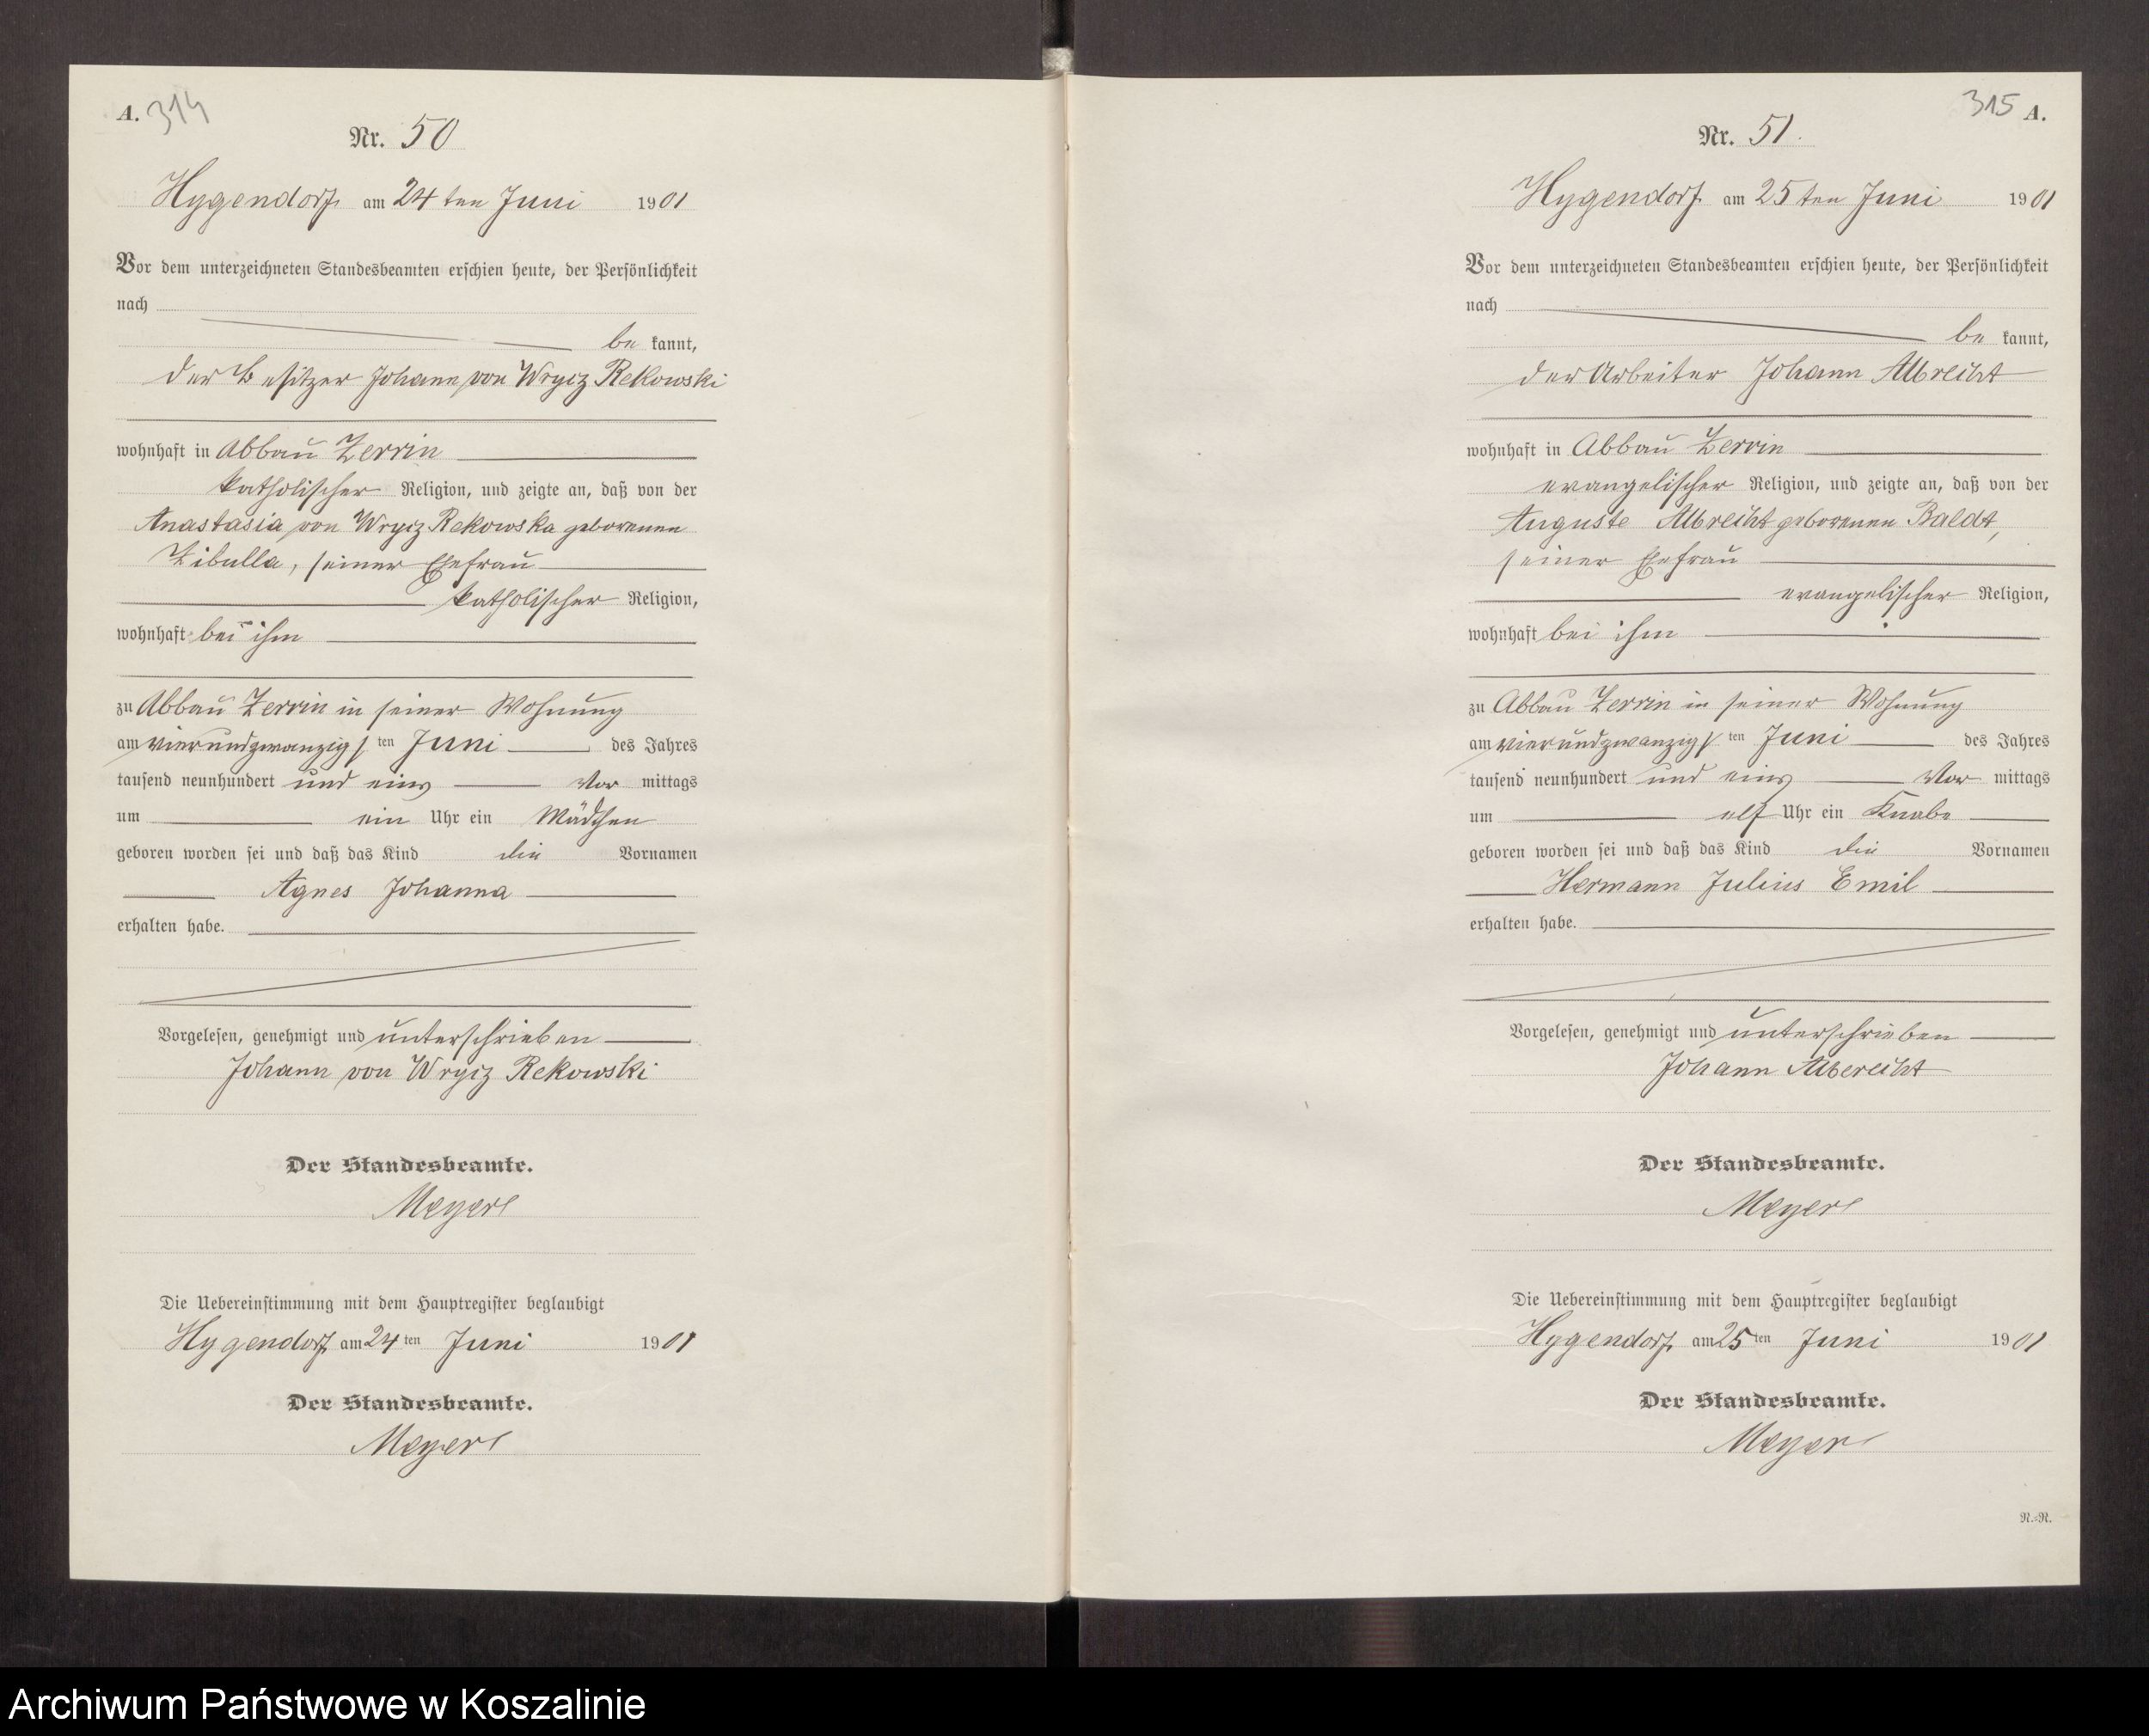 A. 314
Nr. 50
Hygendorf am 24ten Juni 1901
Vor dem unterzeichneten Standesbeamten erschien heute, der Persönlichkeit
nach
be kannt,
der Besitzer Johann von Wrycz Rekowski
wohnhaft in Abbau Zerrin
katholischer Religion, und zeigte an, daß von der
Anastasia von Wrycz Rekowska geborenen
Zibulla, seiner Ehefrau
katholischer Religion,
wohnhaft bei ihm
zu Abbau Zerrin in seiner Wohnung
am vierundzwanzigsten Juni des Jahres
tausend neunhundert und eins Vor mittags
um ein Uhr ein Mädchen
geboren worden sei und daß das Kind die Vornamen
Agnes Johanna
erhalten habe.
Vorgelesen, genehmigt und unterschrieben
Johann von Wrycz Rekowski
Der Standesbeamte.
Meyer
Die Uebereinstimmung mit dem Hauptregister beglaubigt
Hygendorf am 24ten Juni 1901
Der Standesbeamte.
Meyer
315 A.
Nr. 51.
Hygendorf am 25ten Juni 1901
Vor dem unterzeichneten Standesbeamten erschien heute, der Persönlichkeit
nach
be kannt,
der Arbeiter Johann Albrecht
wohnhaft in Abbau Zerrin
evangelischer Religion, und zeigte an, daß von der
Auguste Albrecht geborenen Baldt,
seiner Ehefrau
evangelischer Religion,
wohnhaft bei ihm
zu Abbau Zerrin in seiner Wohnung
am vierundzwanzigsten Juni des Jahres
tausend neunhundert und eins Vor mittags
um elf Uhr ein Knabe
geboren worden sei und daß das Kind die Vornamen
Hermann Julius Emil
erhalten habe.
Vorgelesen, genehmigt und unterschrieben
Johann Alberecht
Der Standesbeamte.
Meyer
Die Uebereinstimmung mit dem Hauptregister beglaubigt
Hygendorf am 25ten Juni 1901
Der Standesbeamte.
Meyer
N.=N.
Archiwum Państwowe w Koszalinie